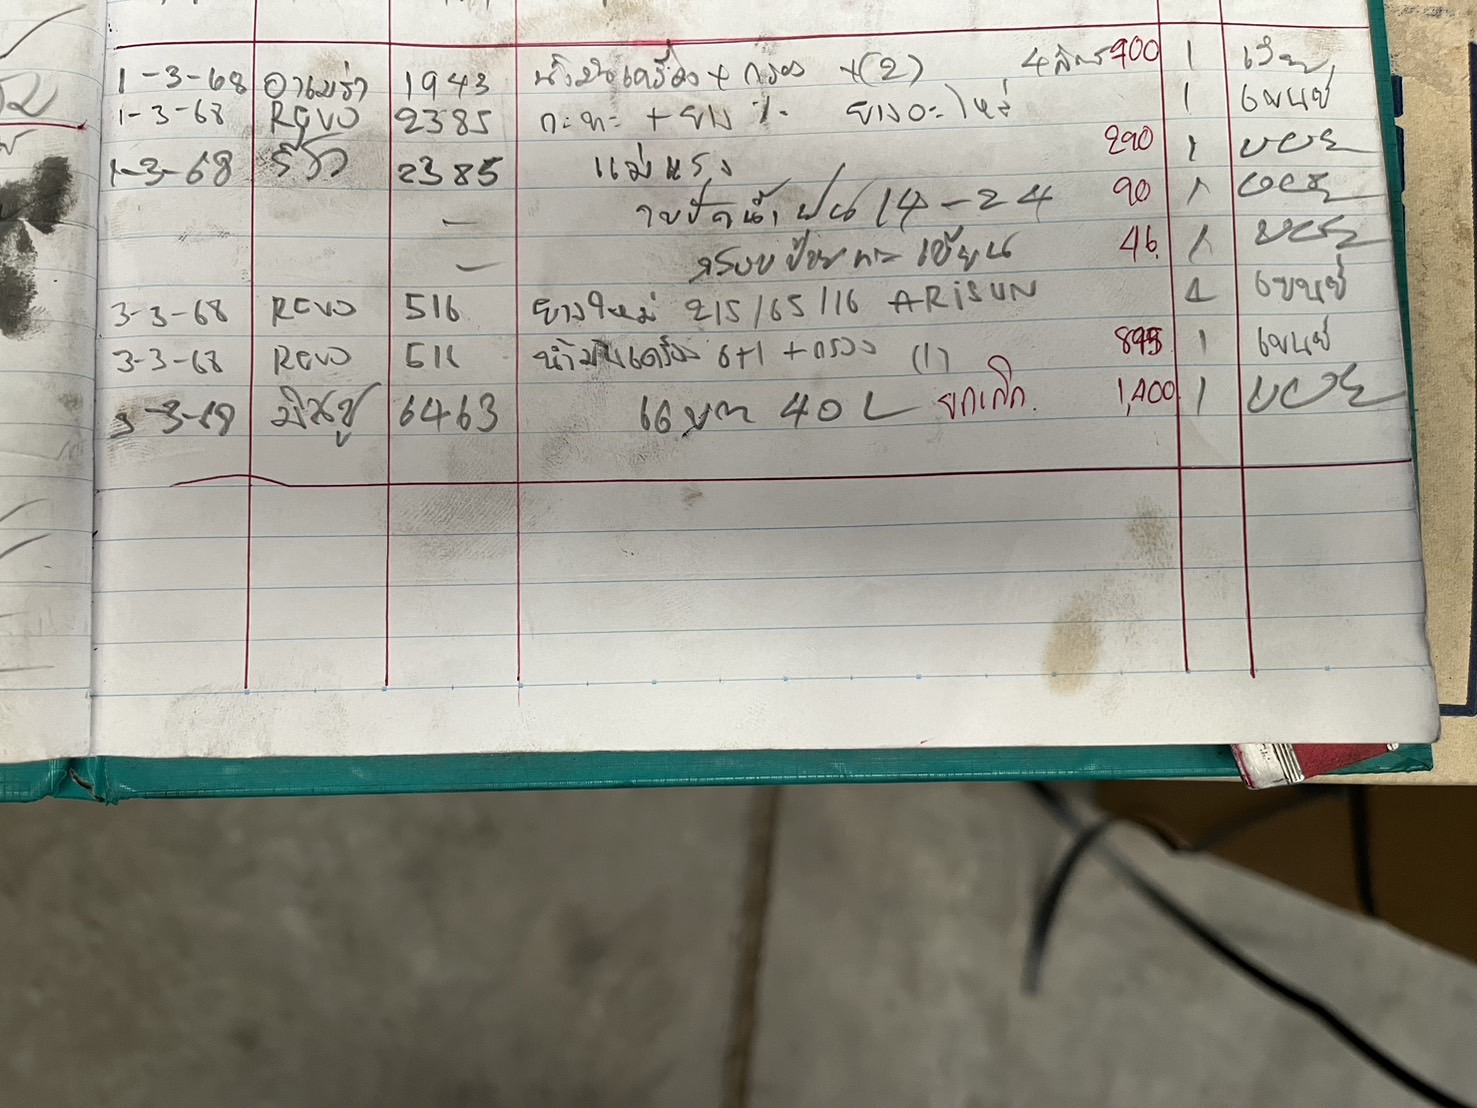 1-3-68 อาเมร่า 1943 น้ำมันเครื่อง + กรอง +(2) 4 ลิตร 900 1
1-3-68 REVO 2385 กะทะ + ยาง % ยางอะไหล่ 1
1-3-68 รีโว 2385 แม่แรง 290 1
— ใบปัดน้ำฝน 14-24 90 1
— กรอบป้ายทะเบียน 46 1
3-3-68 REVO 516 ยางใหม่ 215/65/16 ARISUN 4
3-3-68 REVO 516 น้ำมันเครื่อง 6+1 + กรอง (1) 895 1
3-3-68 มิตซู 6463 40 L ยกเลิก. 1,400 1